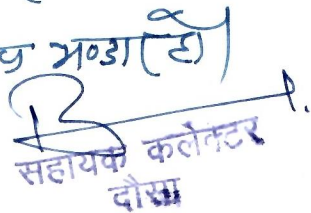 भण्डा
सहायक कलेक्टर
दौसा